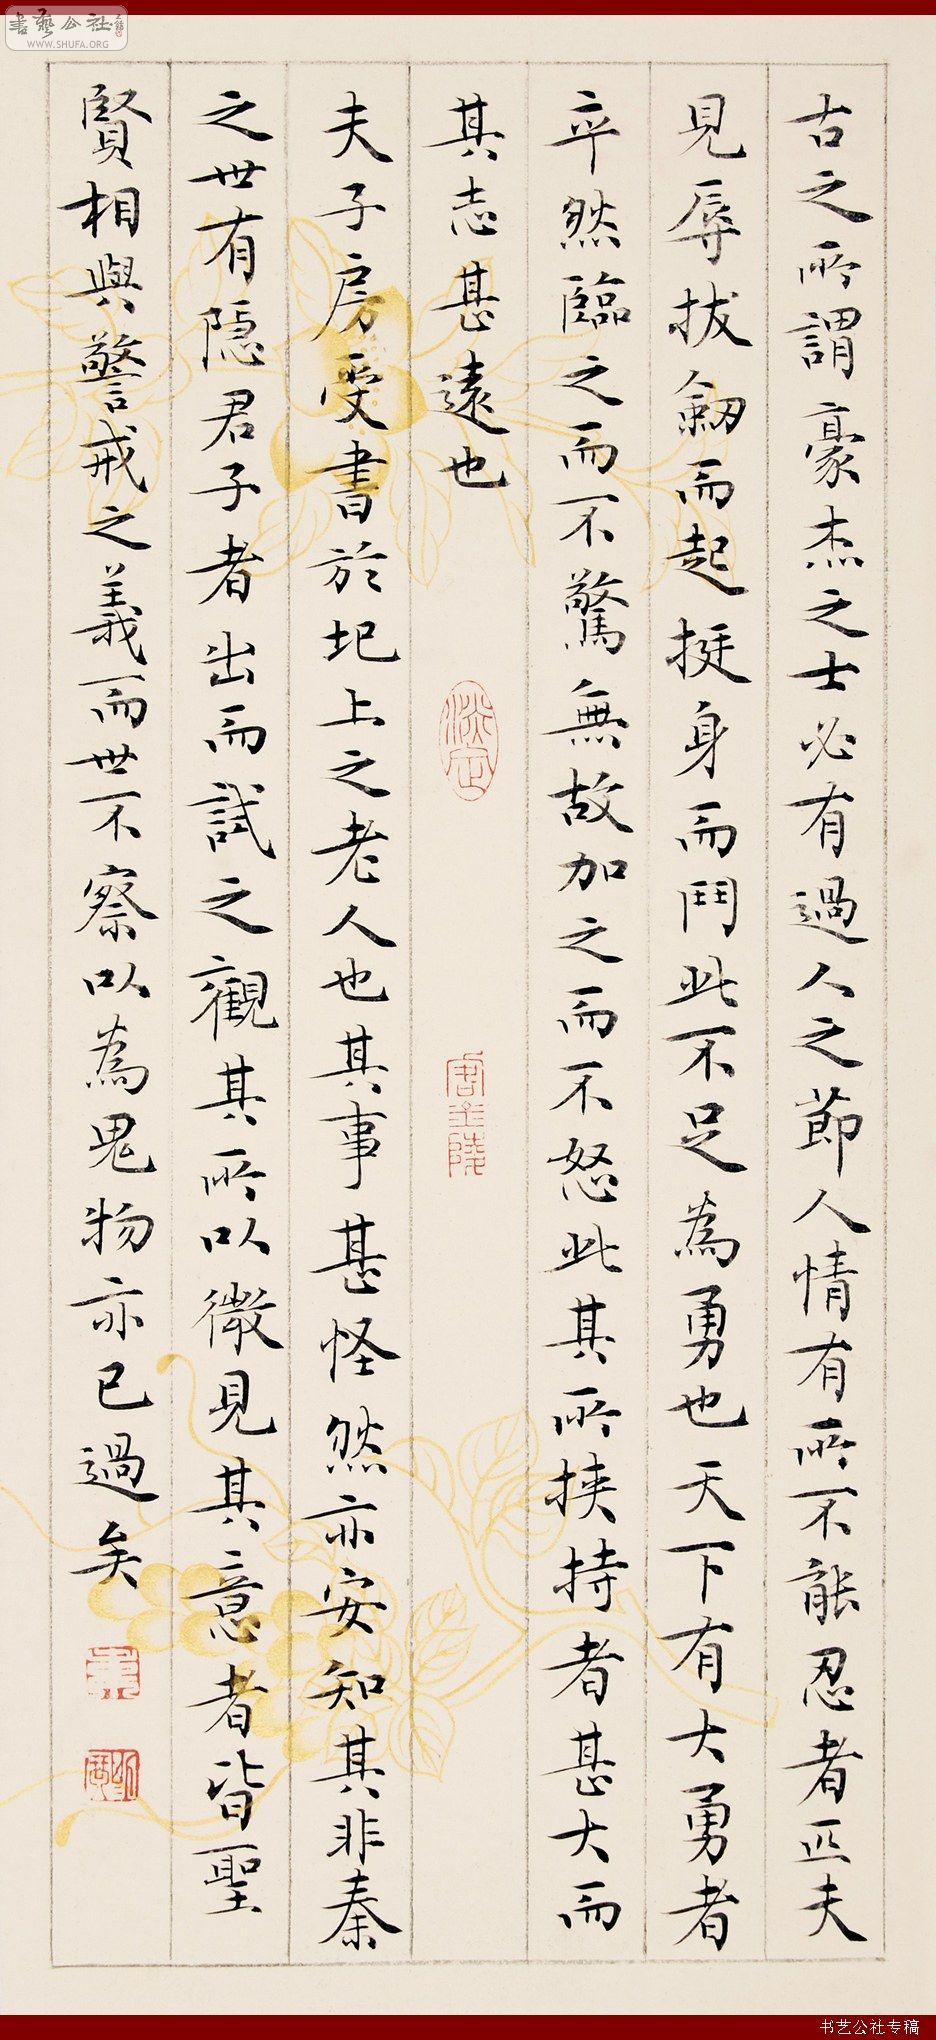 古之所謂豪杰之士必有過人之節人情有所不能忍者匹夫
見辱拔劒而起挺身而鬥此不足為勇也天下有大勇者
卒然臨之而不驚無故加之而不怒此其所挟持者甚大而
其志甚遠也
夫子房受書於圯上之老人也其事甚怪然亦安知其非秦
之世有隱君子者出而試之觀其所以微見其意者皆聖
賢相與警戒之義而世不察以為鬼物亦已過矣
書藝公社
WWW.SHUFA.ORG
书艺公社专稿